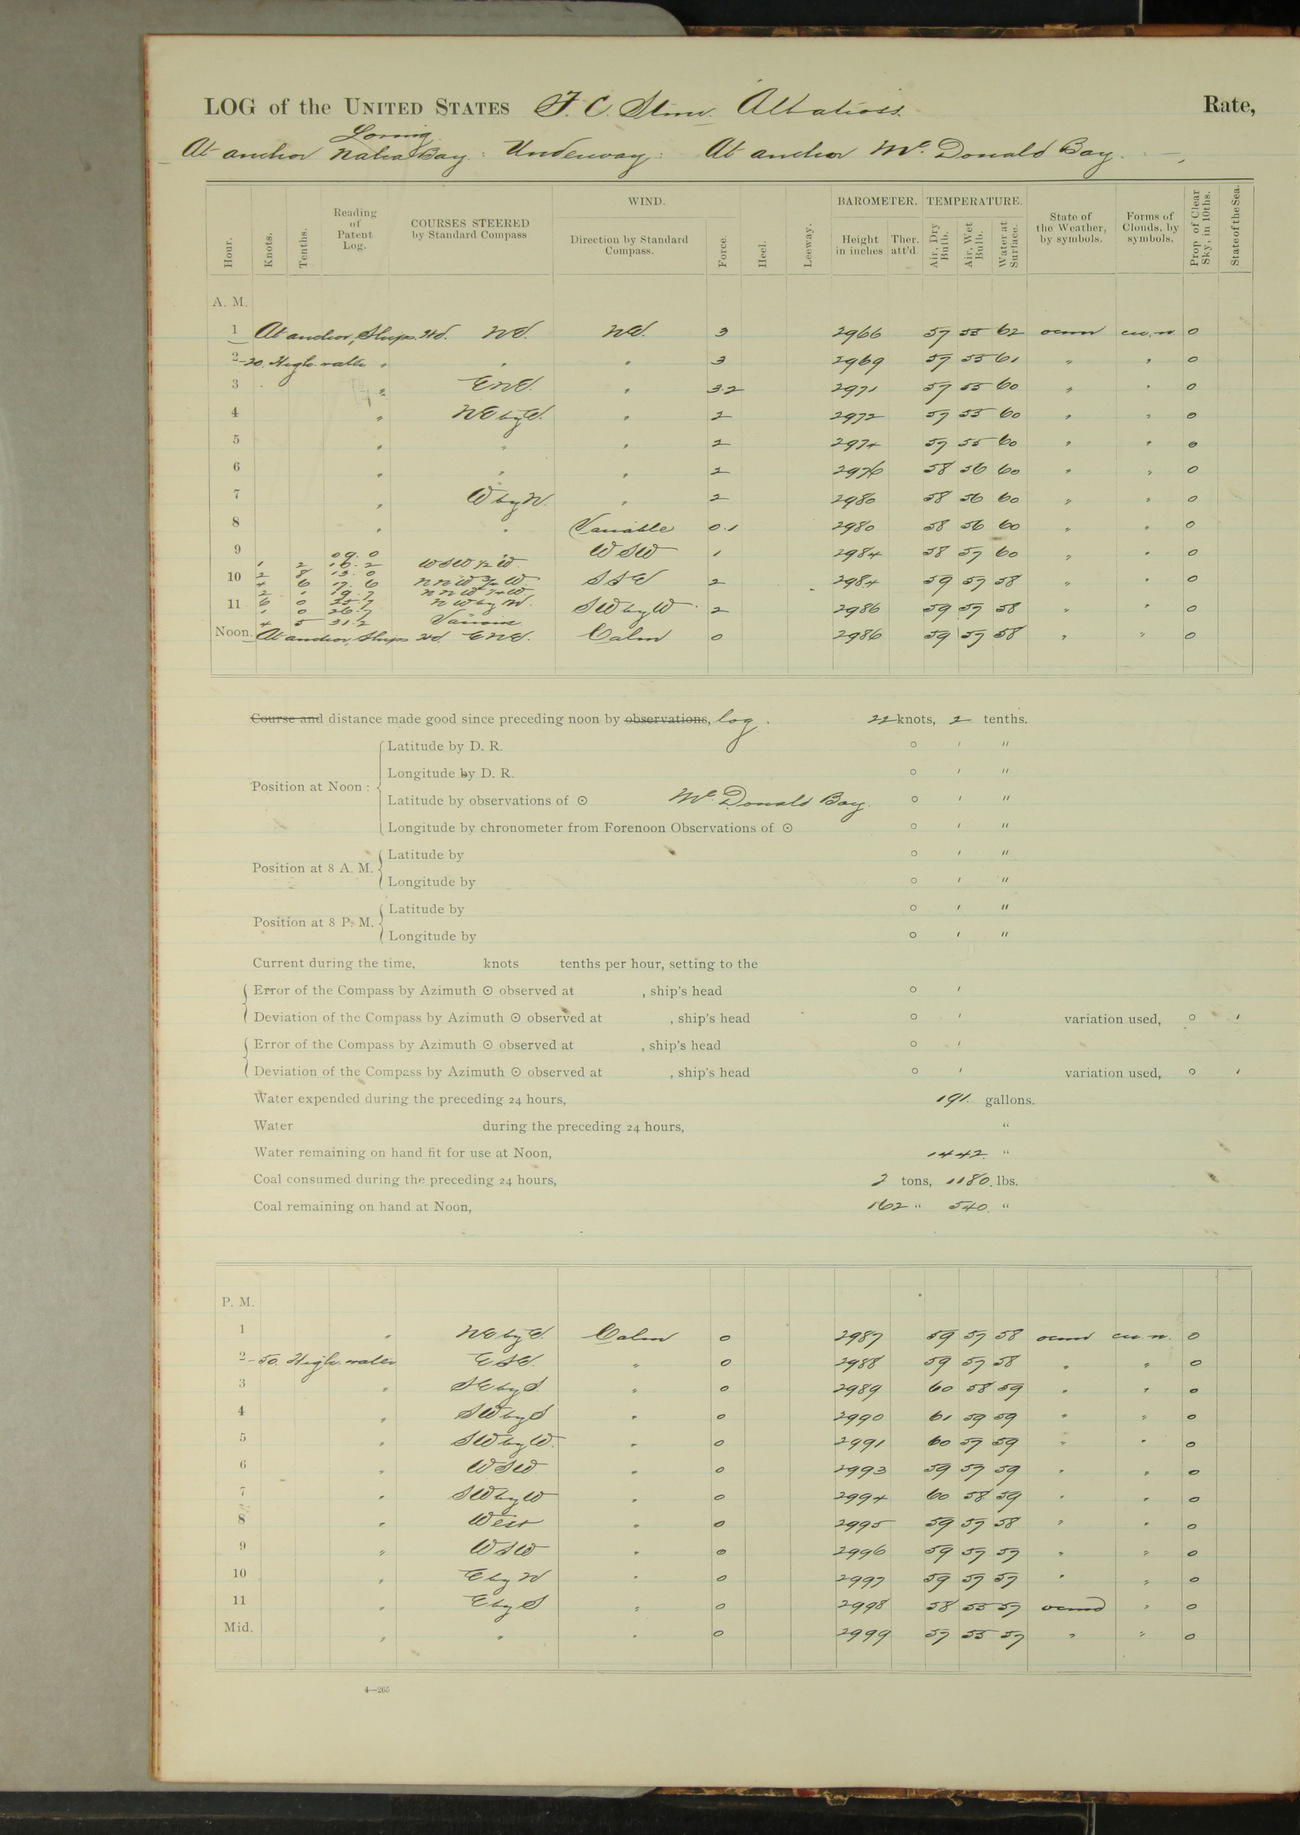 LOG of the UNITED STATES F. C. Stmr. Albatross. Rate,
Loring
At anchor Naha Bay : Underway : At anchor Mc. Donald Bay.
Hour. Knots. Tenths. Reading of Patent Log. COURSES STEERED by Standard Compass WIND. Direction by Standard Compass. Force. Heel. Leeway. BAROMETER. Height in inches Ther. att'd. TEMPERATURE. Air, Dry Bulb. Air, Wet Bulb. Water at Surface. State of the Weather, by symbols. Forms of Clouds, by symbols. Prop. of Clear Sky, in 10ths. State of the Sea.
A. M.
1 At anchor, Ships Hd. NE. NE. 3 2966 57 55 62 ocmr cu. n. 0
2 -20. High water " " " 3 2969 57 55 61 " " 0
3 " ENE. " 3.2 2971 57 55 60 " " 0
4 " NE by E. " 2 2972 57 55 60 " " 0
5 " " " 2 2974 57 55 60 " " 0
6 " " " 2 2976 58 56 60 " " 0
7 " W by N. " 2 2980 58 56 60 " " 0
8 " " Variable 0.1 2980 58 56 60 " " 0
09.0
9 1 2 10.2 WSW 1/2 W. WSW 1 2984 58 57 60 " " 0
2 8 13.0
10 4 6 17.6 NNW 3/4 W. SSE 2 2984 59 57 58 " " 0
2 1 19.7 NNW 3/4 W.
11 6 0 25.7 NW by N. SW by W. 2 2986 59 57 58 " " 0
1 0 26.7
4 5 31.2 Various
Noon. At anchor, Ships Hd ENE. Calm 0 2986 59 57 58 " " 0
Course and distance made good since preceding noon by observations, log. 22 knots, 2 tenths.
Position at Noon :
Latitude by D. R. ° ′ ″
Longitude by D. R. ° ′ ″
Latitude by observations of ☉ Mc. Donald Bay. ° ′ ″
Longitude by chronometer from Forenoon Observations of ☉ ° ′ ″
Position at 8 A. M.
Latitude by ° ′ ″
Longitude by ° ′ ″
Position at 8 P. M.
Latitude by ° ′ ″
Longitude by ° ′ ″
Current during the time, knots tenths per hour, setting to the
Error of the Compass by Azimuth ☉ observed at , ship's head ° ′
Deviation of the Compass by Azimuth ☉ observed at , ship's head ° ′ variation used, ° ′
Error of the Compass by Azimuth ☉ observed at , ship's head ° ′
Deviation of the Compass by Azimuth ☉ observed at , ship's head ° ′ variation used, ° ′
Water expended during the preceding 24 hours, 191. gallons.
Water during the preceding 24 hours, "
Water remaining on hand fit for use at Noon, 1442. "
Coal consumed during the preceding 24 hours, 2 tons, 1180. lbs.
Coal remaining on hand at Noon, 162 " 540. "
P. M.
1 " NE by E. Calm 0 2987 59 57 58 ocmr cu. n. 0
2 -50. High water ESE. " 0 2988 59 57 58 " " 0
3 " SE by S. " 0 2989 60 58 59 " " 0
4 " SW by S " 0 2990 61 59 59 " " 0
5 " SW by W. " 0 2991 60 57 59 " " 0
6 " WSW. " 0 2993 59 57 59 " " 0
7 " SW by W " 0 2994 60 58 59 " " 0
8 " West " 0 2995 59 57 58 " " 0
9 " WSW " 0 2996 59 57 57 " " 0
10 " E by N " 0 2997 59 57 57 " " 0
11 " E by S " 0 2998 58 55 57 ocmd " 0
Mid. " " " 0 2999 57 55 57 " " 0
4—265